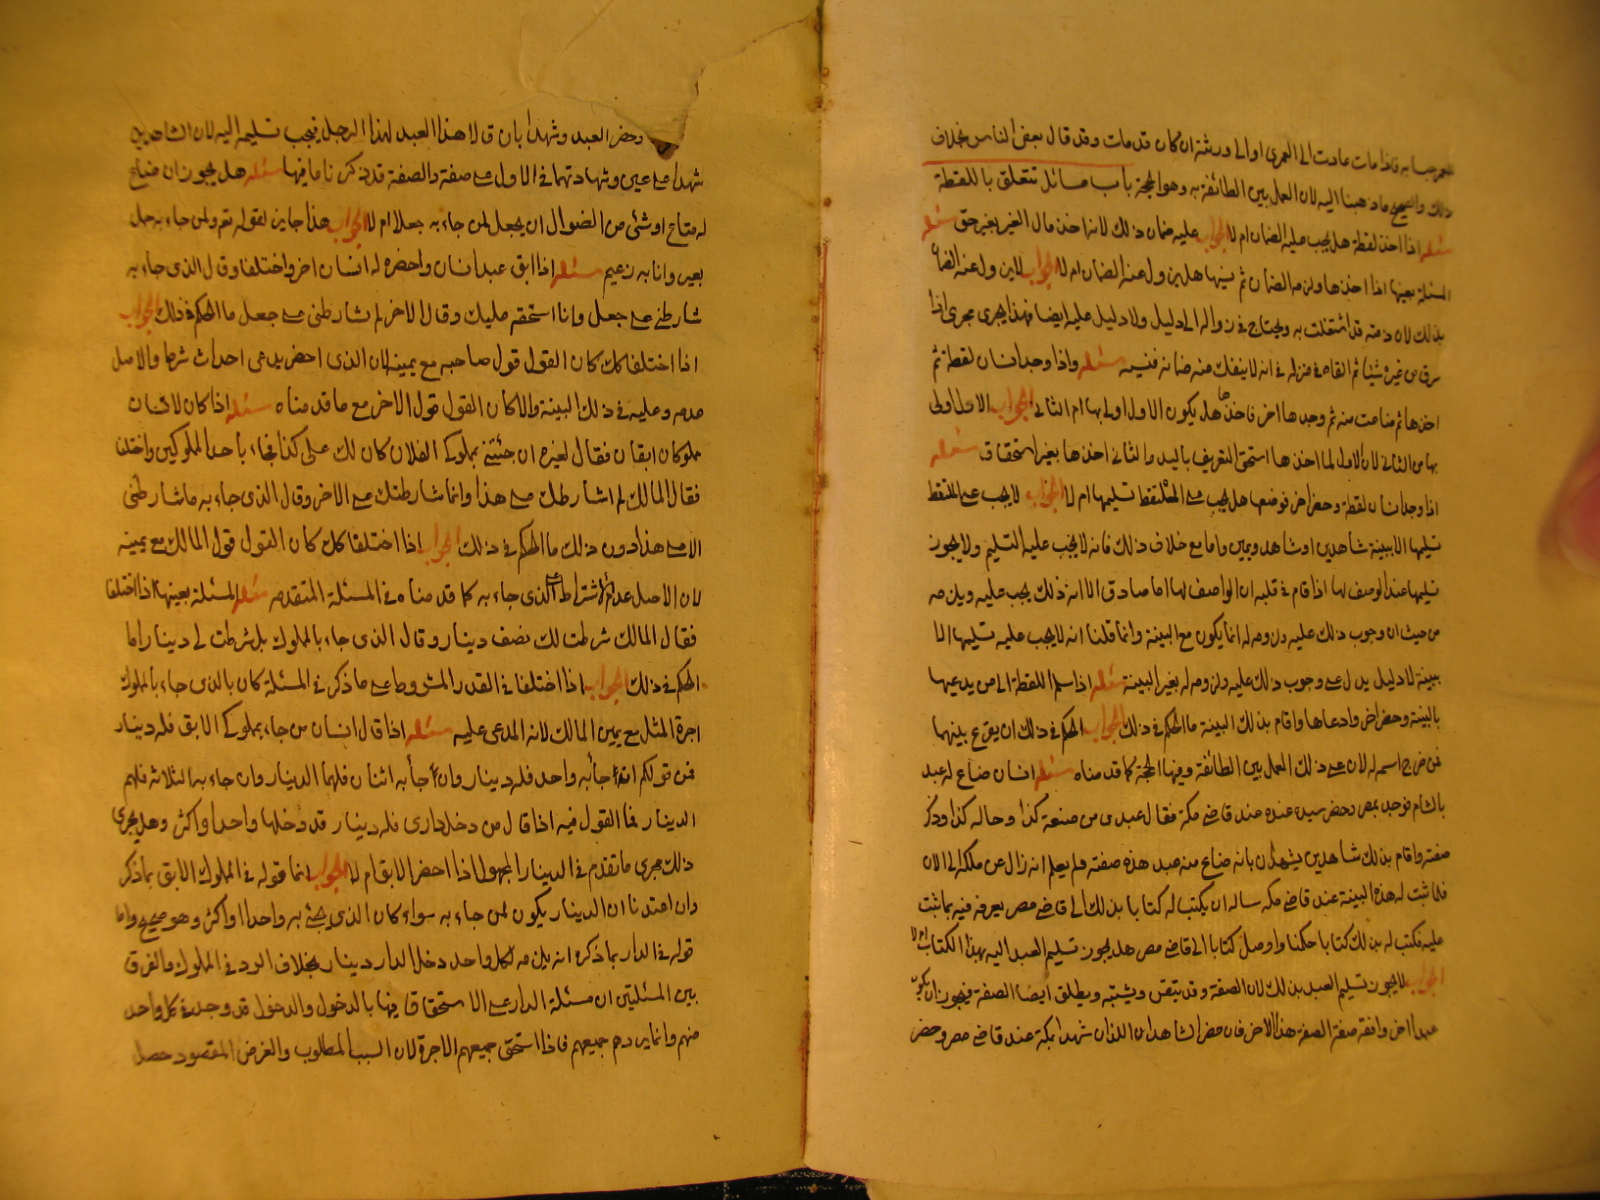 المعمر حيا به فاذا مات عادت الى العمرى او الى ورثته ان كان قد مات وقد قال بعض الناس بخلاف
ذلك والصحيح ما ذهبنا اليه لان العمل بين الطائفة به وهو الحجة باب مسائل تتعلق باللقطة
مسئله اذا اخذ لقطة هل يجب عليه الضمان ام لا الجواب عليه ضمان ذلك لانه اخذ مال الغير بغير حق مسئله
المسئلة بعينها اذا اخذها ولزمه الضمان ثم ردها هل يزول عنه الضمان ام لا الجواب لا يزول عنه الضمان
بذلك لان ذمته قد اشتغلت به ويحتاج في زواله الى دليل ولا دليل عليه ايضا فهذا يجرى مجرى اذا
سرق من غيره شيئا ثم القاه في منزله في انه لا ينفك منه ضمانه مسئله واذا وجد انسان لقطة ثم
اخذها ثم ضاعت منه ثم وجدها اخر فاخذها هل يكون الاول اولى بها ام الثانى الجواب الاول اولى
بها من الثانى لان الاول لما اخذها استحق التعريف باليد والثانى اخذها بغير استحقاق مسئله
اذا وجد انسان لقطة وحضر اخر فوصفها هل يجب على الملتقط تسليمها ام لا الجواب لا يجب على الملتقط
تسليمها الا ببينة شاهدين او شاهد ويمين واما مع خلاف ذلك فانه لا يجب عليه التسليم ولا يجوز
تسليمها عند الوصف لها اذا قام في قلبه ان الواصف لها اما صادق الا انه ذلك يجب عليه ويلزمه
من حيث ان وجوب ذلك عليه ولزومه له انما يكون مع البينة وانما قلنا انه لا يجب عليه تسليمها الا
ببينة لا دليل يدل على وجوب ذلك عليه ولزومه له بغير البينة مسئله اذا سلم اللقطة الى من يدعيها
بالبينة وحضر اخر وادعاها واقام بذلك البينة ما الحكم في ذلك الجواب الحكم في ذلك ان يقرع بينهما
فمن خرج اسمه له لان على ذلك العمل بين الطائفة وفيها الحجة كما قدمناه مسئله انسان ضاع له عبد
بالشام فوجد بمصر وحضر سيده عنده عند قاضى مكة فقال عبدى من صنعة كذا وحاله كذا وذكر
صفته واقام بذلك شاهدين يشهدان بانه ضاع منه عبد هذه صفته فلم يعلم انه زال عن ملكه الى الان
فلما ثبت له هذه البينة عند قاضى مكه ساله ان يكتب له كتابا بذلك الى قاضى مصر يعرفه فيه بما ثبت
عليه فكتب له بذلك كتابا حكمنا واوصل كتابا الى قاضى مصر هل يجوز تسليم العبد اليه بهذا الكتاب ام لا
الجواب لا يجوز تسليم العبد بذلك لان الصفة وقد تتفق وتشتبه ويطلق ايضا الصفة فيجوز ان يكون
عبدا اخر وافقه صفة الصفة هذا الاخر فان حضر الشاهدان اللذان شهدا بمكة عند قاضى مصر وحضر
وحضر العبد وشهدا بان قالا هذا العبد لهذا الرجل فيجب تسليمه اليه لان الشاهدين
شهدا على عين وشهادتهما في الاول على صفة والصفة قد ذكرنا ما فيها مسئله هل يجوز ان ضاع
له متاع او شئ من الضوال ان يجعل لمن جاء به جعلا ام لا الجواب هذا جايز لقوله تع ولمن جاء به حمل
بعير وانا به زعيم مسئله اذا ابق عبد انسان واحضره له انسان اخر واختلفا وقال الذى جاء به
شارطنى على جعل وانا استحقه عليك وقال الاخر لم تشارطنى على جعل ما الحكم في ذلك الجواب
اذا اختلفا كك كان القول قول صاحبه مع يمينه لان الذى احضره يدعى احداث شرط والاصل
عدمه وعليه في ذلك البينة والا كان القول قول الاخر مع ما قدمناه مسئله اذا كان لانسان
مملوكان ابقان فقال لغيره ان جئتنى بمملوكى الفلان كان لك على كذا فجاء باحد المملوكين واختلفا
فقال المالك لم اشارطك على هذا وانما شارطتك على الاخر وقال الذى جاء به ما شارطنى
الا على هذا دون ذلك ما الحكم في ذلك الجواب اذا اختلفا كك كان القول قول المالك مع يمينه
لان الاصل عدم الاشتراط على الذى جاء به كما قدمناه في المسئلة المتقدمه مسئله المسئلة بعينها اذا اختلفا
فقال المالك شرطت لك نصف دينار وقال الذى جاء بالمملوك بل شرطت لى دينارا ما
الحكم في ذلك الجواب اذا اختلفا في القدر المشروط على ما ذكر في المسئلة كان بالذى جاء بالمملوك
اجرة المثل مع يمين المالك لانه المدعى عليه مسئله اذا قال انسان من جاء بمملوكى الابق فله دينار
فمن قولكم انه جاء به واحد فله دينار وان جاء به اثنان فلهما الدينار وان جاء به الثلاثه فلهم
الدينار فما القول فيه اذا قال من دخل دارى فله دينار قد دخلها واحدا واكثر وهل يجرى
ذلك مجرى ما تقدم في الدينار المجهول اذا احضر الابق ام لا الجواب انما قوله في المملوك الابق بما ذكر
وان اعتدنا ان الدينار يكون لمن جاء به سواء كان الذى يجئ به واحدا او اكثر وهو صحيح واما
قوله في الدار بما ذكره انه يلزمه لكل واحد دخل الدار دينار بخلاف الرد في المملوك والفرق
بين المسئلتين ان مسئلة الدار على الاستحقاق فيها بالدخول والدخول قد وجد في كل واحد
منهم وانما يردهم جميعهم فاذا استحق جميعهم الاجرة لان السبب المطلوب والغرض المقصود حصل